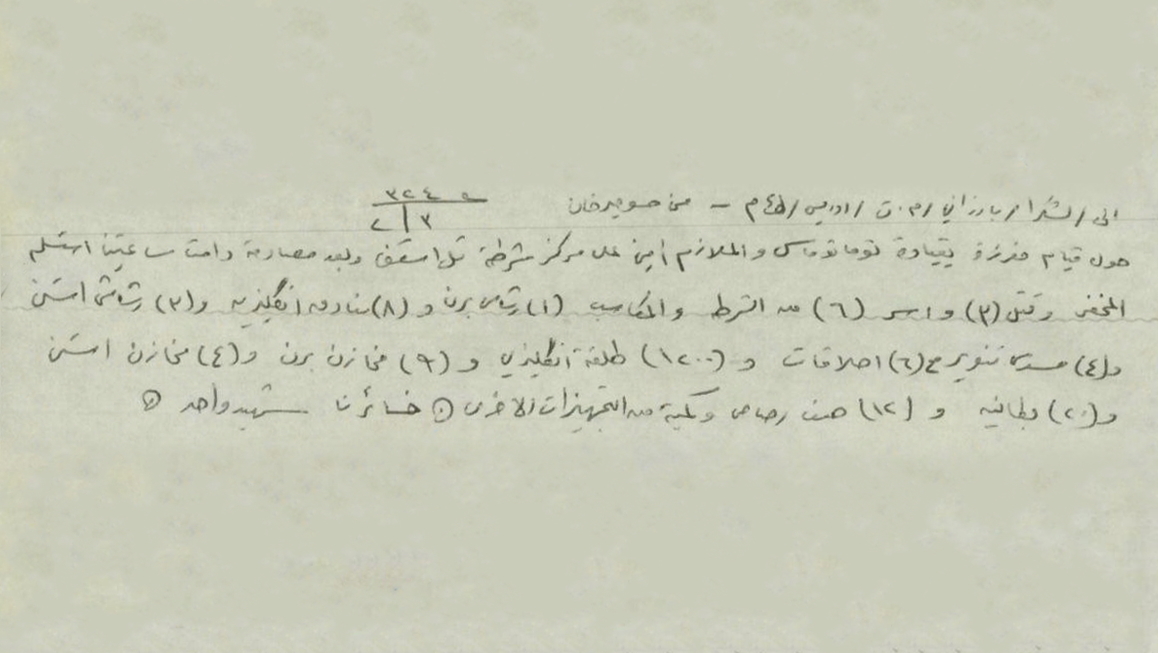 ٣٢٤٩
٢ | ٣
الى / لشكرا / بارزاني / م.ت / ادريس / م - من حسو ميرخان
حول قيام مفرزة بقيادة توما توماس والملازم امين على مركز شرطة تل اسقف وبعد مصادمة دامت ساعتين استسلم
المخفر وقتل (٣) واسر (٦) من الشرطة والمكاسب (١) رشاش برن و (٨) بنادق انكليزية و(٣) رشاش استن
و(٤) تنوير مع (٦) اطلاقات و (١٢٠٠) طلقة انكليزي و (٩) مخازن برن و(٤) مخازن استن
و(٢٠) بطانية و (١٢) صف رصاص وكمية من التجهيزات الاخرى ⊙ خسائرنا شهيد واحد ⊙